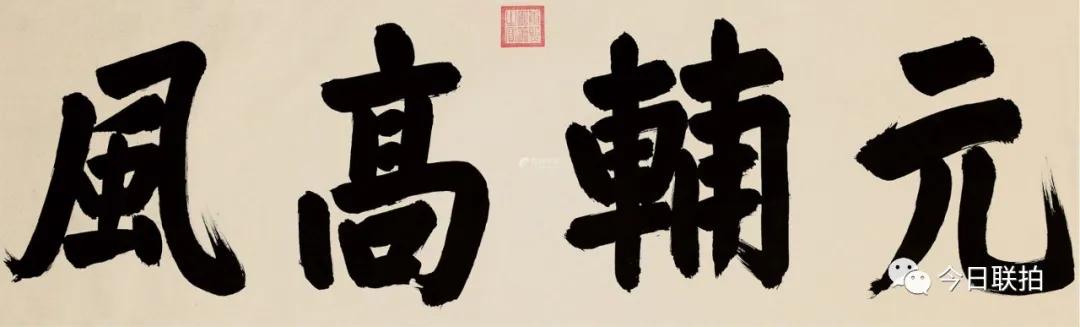 元輔高風
今日联拍